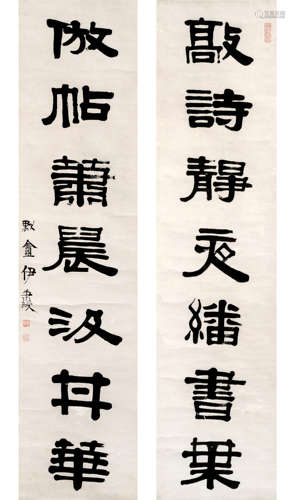 敲詩靜夜繙書枼
倣帖蕭晨汲井華
默盦伊秉綬